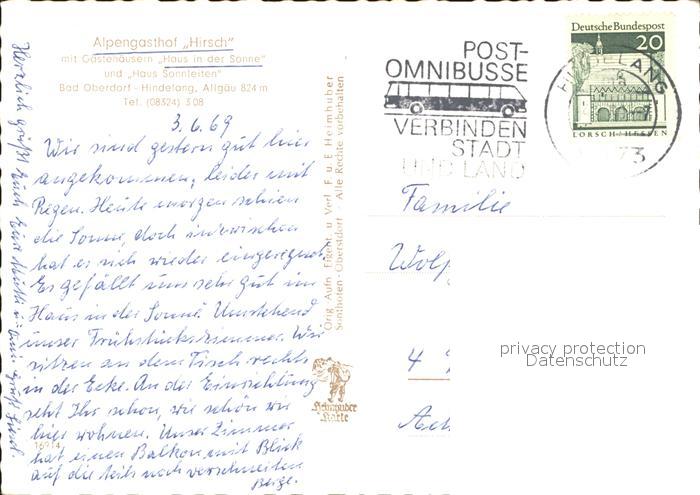 Alpengasthof „Hirsch“
mit Gästehäusern „Haus in der Sonne“
und „Haus Sonnleiten“
Bad Oberdorf - Hindelang, Allgäu 824 m
Tel. (08324) 308
3.6.69
Wir sind gestern gut hier
angekommen, leider mit
Regen. Heute morgen schien
die Sonne, doch inzwischen
hat es sich wieder eingeregnet.
Es gefällt uns sehr gut im
Haus in der Sonne. Umstehend
unser Frühstückszimmer. Wir
sitzen an dem Tisch rechts
in der Ecke. An der Einrichtung
seht Ihr schon, wie schön wir
hier wohnen. Unser Zimmer
hat einen Balkon mit Blick
auf die teils noch verschneiten
Berge.
Herzlich grüßt Euch Eure Mutti u.
16914
Orig. Aufn. Eigent. u. Verl. F. u. E. Heimhuber
Sonthofen - Oberstdorf · Alle Rechte vorbehalten
Heimhuber
Karte
POST-
OMNIBUSSE
VERBINDEN
STADT
UND LAND
HINDELANG
Deutsche Bundespost
20
LORSCH/HESSEN
Familie
Wolf
4
privacy protection
Datenschutz